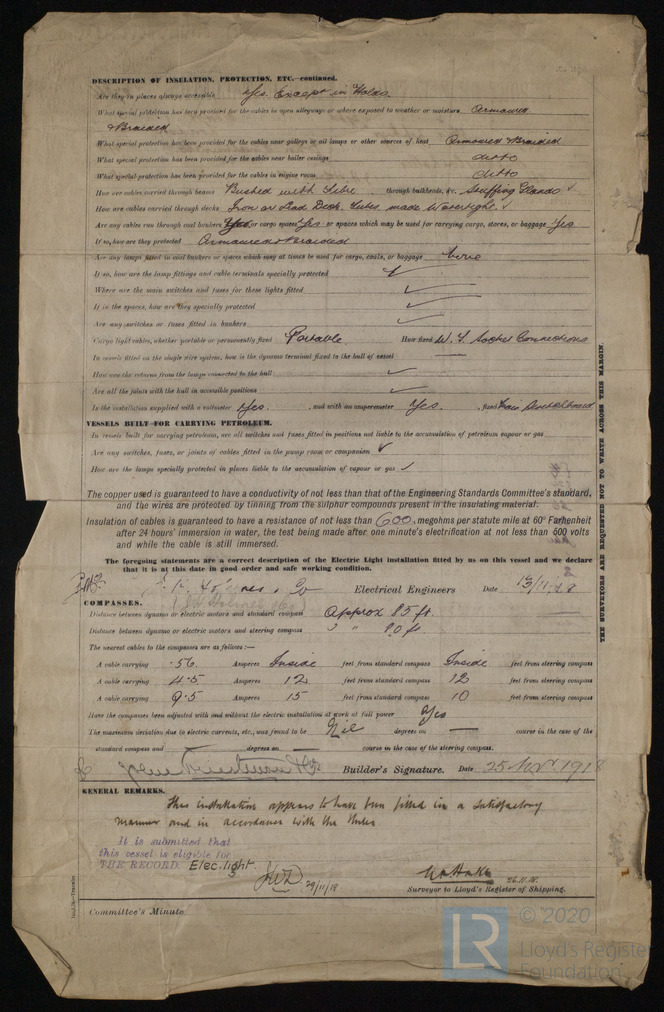 DESCRIPTION OF INSULATION, PROTECTION, ETC.—continued.
Are they in places always accessible Yes. Except in Holds
What special protection has been provided for the cables in open alleyways or where exposed to weather or moisture Armoured
& Braided
What special protection has been provided for the cables near galleys or oil lamps or other sources of heat Armoured & Braided
What special protection has been provided for the cables near boiler casings ditto
What special protection has been provided for the cables in engine room ditto
How are cables carried through beams Bushed with Fibre through bulkheads, &c. Stuffing Glands ✓
How are cables carried through decks Iron or Lead Deck Tubes made Watertight ✓
Are any cables run through coal bunkers Yes or cargo spaces Yes or spaces which may be used for carrying cargo, stores, or baggage Yes
If so, how are they protected Armoured & Braided
Are any lamps fitted in coal bunkers or spaces which may at times be used for cargo, coals, or baggage None
If so, how are the lamp fittings and cable terminals specially protected ✓
Where are the main switches and fuses for these lights fitted ✓
If in the spaces, how are they specially protected ✓
Are any switches or fuses fitted in bunkers ✓
Cargo light cables, whether portable or permanently fixed Portable How fixed W. T. Socket Connections
In vessels fitted on the single wire system, how is the dynamo terminal fixed to the hull of vessel —
How are the returns from the lamps connected to the hull ✓
Are all the joints with the hull in accessible positions ✓
Is the installation supplied with a voltmeter Yes. , and with an amperemeter Yes. , fixed Main Switchboard
VESSELS BUILT FOR CARRYING PETROLEUM.
In vessels built for carrying petroleum, are all switches and fuses fitted in positions not liable to the accumulation of petroleum vapour or gas
Are any switches, fuses, or joints of cables fitted in the pump room or companion ✓
How are the lamps specially protected in places liable to the accumulation of vapour or gas ✓
The copper used is guaranteed to have a conductivity of not less than that of the Engineering Standards Committee's standard,
and the wires are protected by tinning from the sulphur compounds present in the insulating material.
Insulation of cables is guaranteed to have a resistance of not less than 600 megohms per statute mile at 60° Farhenheit
after 24 hours' immersion in water, the test being made after one minute's electrification at not less than 500 volts
and while the cable is still immersed.
The foregoing statements are a correct description of the Electric Light installation fitted by us on this vessel and we declare
that it is at this date in good order and safe working condition.
J. H. Holmes & Co Electrical Engineers Date 13/11/18
COMPASSES.
Distance between dynamo or electric motors and standard compass Approx 85 ft.
Distance between dynamo or electric motors and steering compass " " 80 ft
The nearest cables to the compasses are as follows:—
A cable carrying .56 Amperes Inside feet from standard compass Inside feet from steering compass
A cable carrying 4.5 Amperes 12 feet from standard compass 12 feet from steering compass
A cable carrying 9.5 Amperes 15 feet from standard compass 10 feet from steering compass
Have the compasses been adjusted with and without the electric installation at work at full power Yes
The maximum deviation due to electric currents, etc., was found to be Nil degrees on — course in the case of the
standard compass and — degrees on — course in the case of the steering compass.
Builder's Signature. Date 25 Nov 1918
GENERAL REMARKS.
This installation appears to have been fitted in a satisfactory
manner and in accordance with the Rules
It is submitted that
this vessel is eligible for
THE RECORD. Elec. light.
29/11/18
26.11.18.
Surveyor to Lloyd's Register of Shipping.
Committee's Minute
THE SURVEYORS ARE REQUESTED NOT TO WRITE ACROSS THIS MARGIN.
LR
© 2020
Lloyd's Register
Foundation